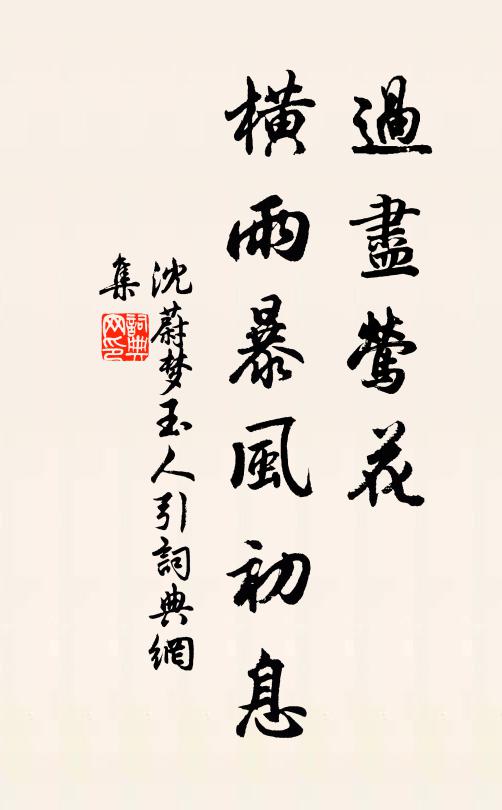 過盡鶯花
橫雨暴風初息
沈蔚梦玉人引詞典網
集
詞典
网印